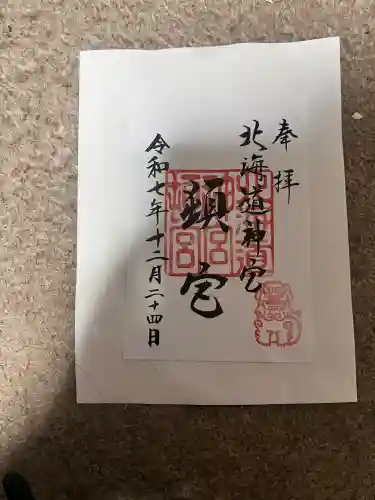 奉拝
北海道神宮
頓宮
令和七年十二月二十四日